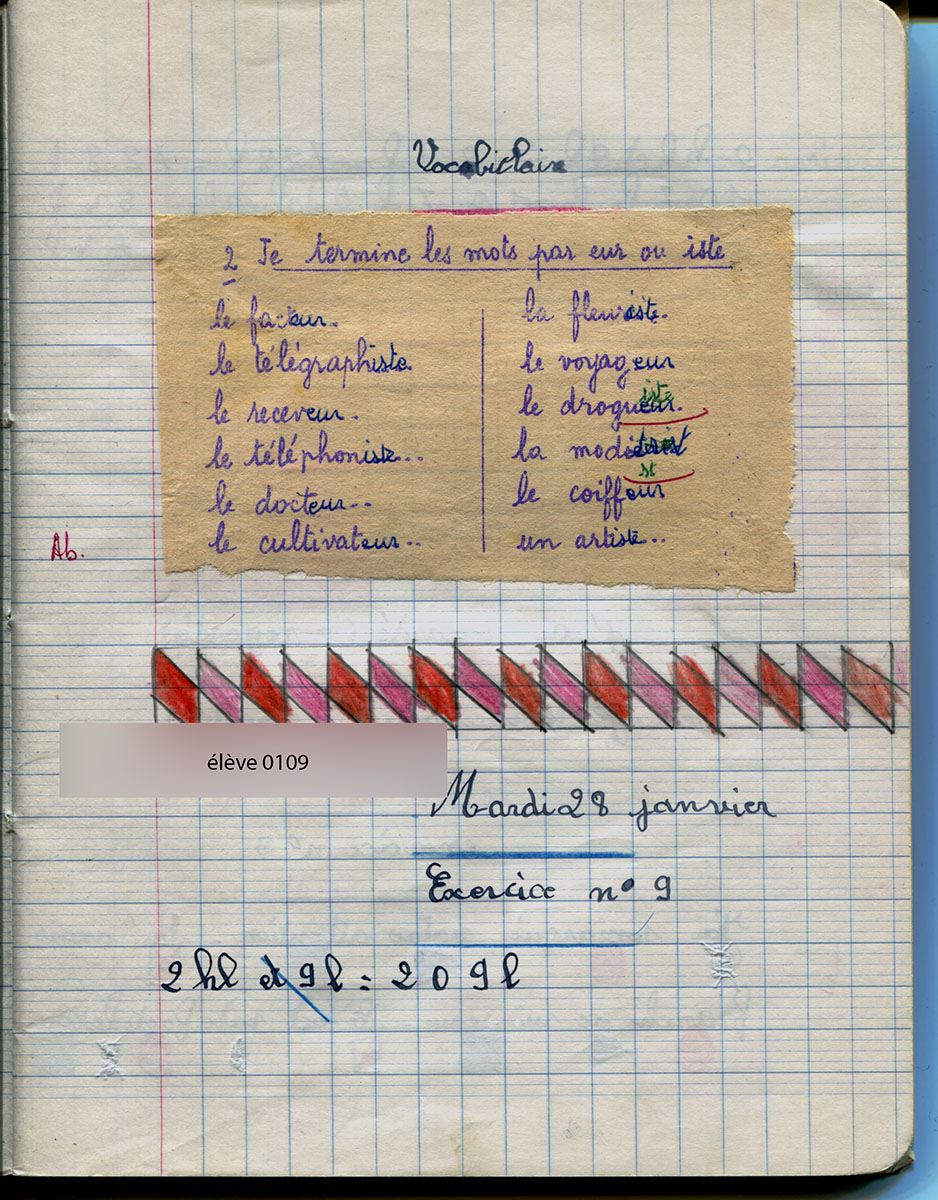 Vocabulaire
2 Je termine les mots par eur ou iste
le facteur.
le télégraphiste.
le receveur.
le téléphoniste...
le docteur...
le cultivateur...
la fleuriste.
le voyageur
iste
le drogueur.
la modi
st
le coiffeur
un artiste...
Ab.
élève 0109
Mardi 28 janvier
Exercice n° 9
2 hl et 9 l = 2 0 9 l